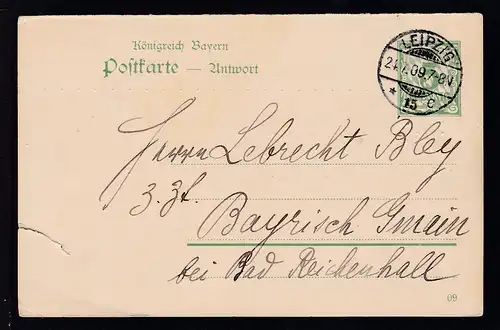 Königreich Bayern
Postkarte — Antwort
LEIPZIG
09.7-8V
* 15 c
Herrn Lebrecht Bley
z. Zt.
Bayrisch Gmain
bei Bad Reichenhall
09